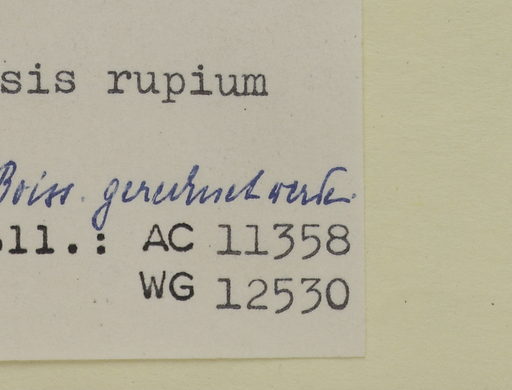 sis rupium
Boiss. gerechnet werde.
oll.: AC 11358
WG 12530